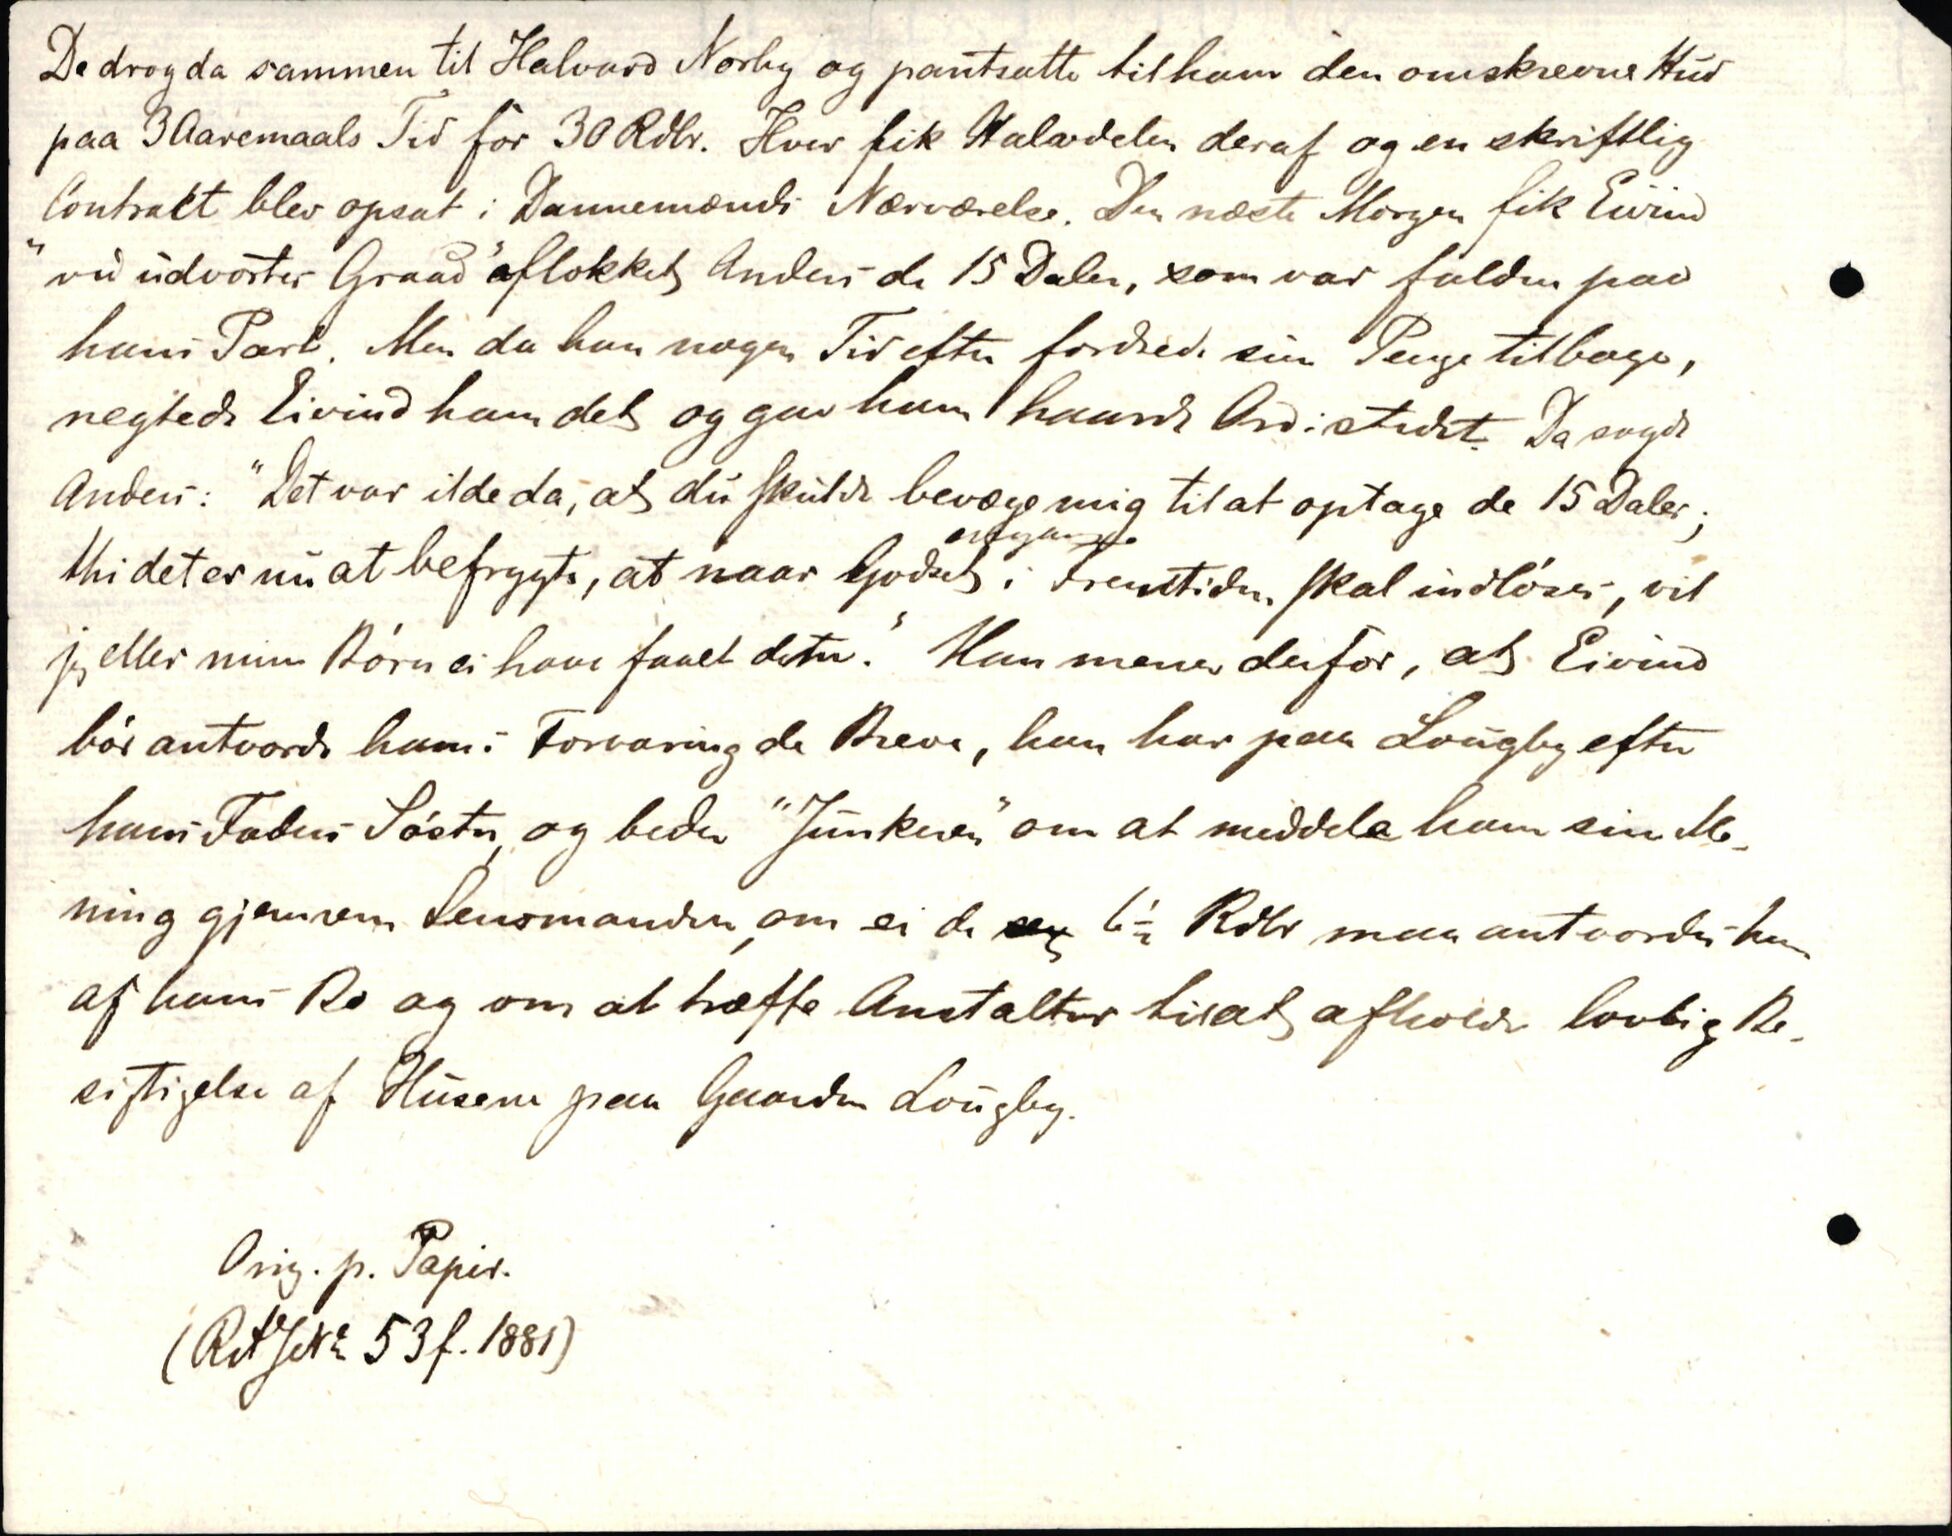 De drog da sammen til Halvard Norby og pantsatte til ham den omskrevne Hud
paa 3 Aaremaals Tid for 30 Rdlr. Hver fik Halvdelen deraf og en skriftlig
Contract blev opsat i Dannemænds Nærværelse. Den næste Morgen fik Eivind
"vid udvorter Graad" aflokket Anders de 15 Daler, som var falden paa
hans Part. Men da han nogen Tid efter fordrede sine Penge tilbage,
negtede Eivind ham det og gav ham haarde Ord istedet. Da sagde
Anders: "Det var ilde da, at du skulde bevæge mig til at optage de 15 Daler;
thi det er nu at befrygte, at naar Godset engang i Fremtiden skal indløses, vil
jeg eller mine Børn ei have faaet dette." Han mener derfor, at Eivind
bør antvorde ham i Forvaring de Breve, han har paa Lougby efter
hans Faders Søster, og beder "Junkeren" om at meddele ham sin Me-
ning gjennem Lensmanden, om ei de 6½ Rdlr maa antvordes ham
af hans Bo og om at træffe Anstalter til at afholde lovlig Be-
sigtigelse af Husene paa Gaarden Lougby.
Orig. p. Papir.
53 f. 1881)